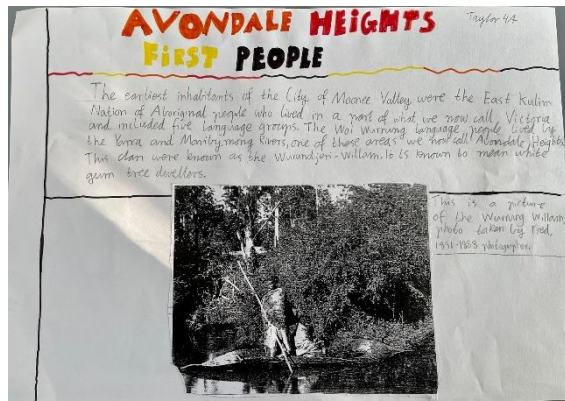 AVONDALE HEIGHTS
Taylor 4A
FiRST PEOPLE
The earliest inhabitants of the City of Moonee Valley were the East Kulin
Nation of Aboriginal people who lived in a part of what we now call, Victoria
and included five language groups. The Woi Wurrung language people lived by
the Yarra and Maribyrnong Rivers, one of these areas we now call Avondale Heights
This clan were known as the Wurundjeri-Willam. It is known to mean white
gum tree dwellers.
This is a picture
of the Wurrung Willam,
photo taken by Fred,
1858 photographer.